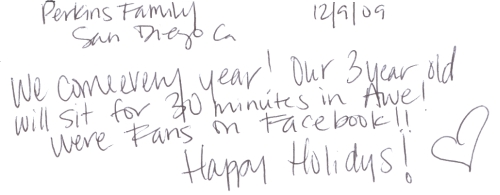 Perkins Family 12/9/09
San Diego Ca
We come every year! Our 3 year old
will sit for 30 minutes in Awe!
Were Fans on Facebook!!
Happy Holidys!